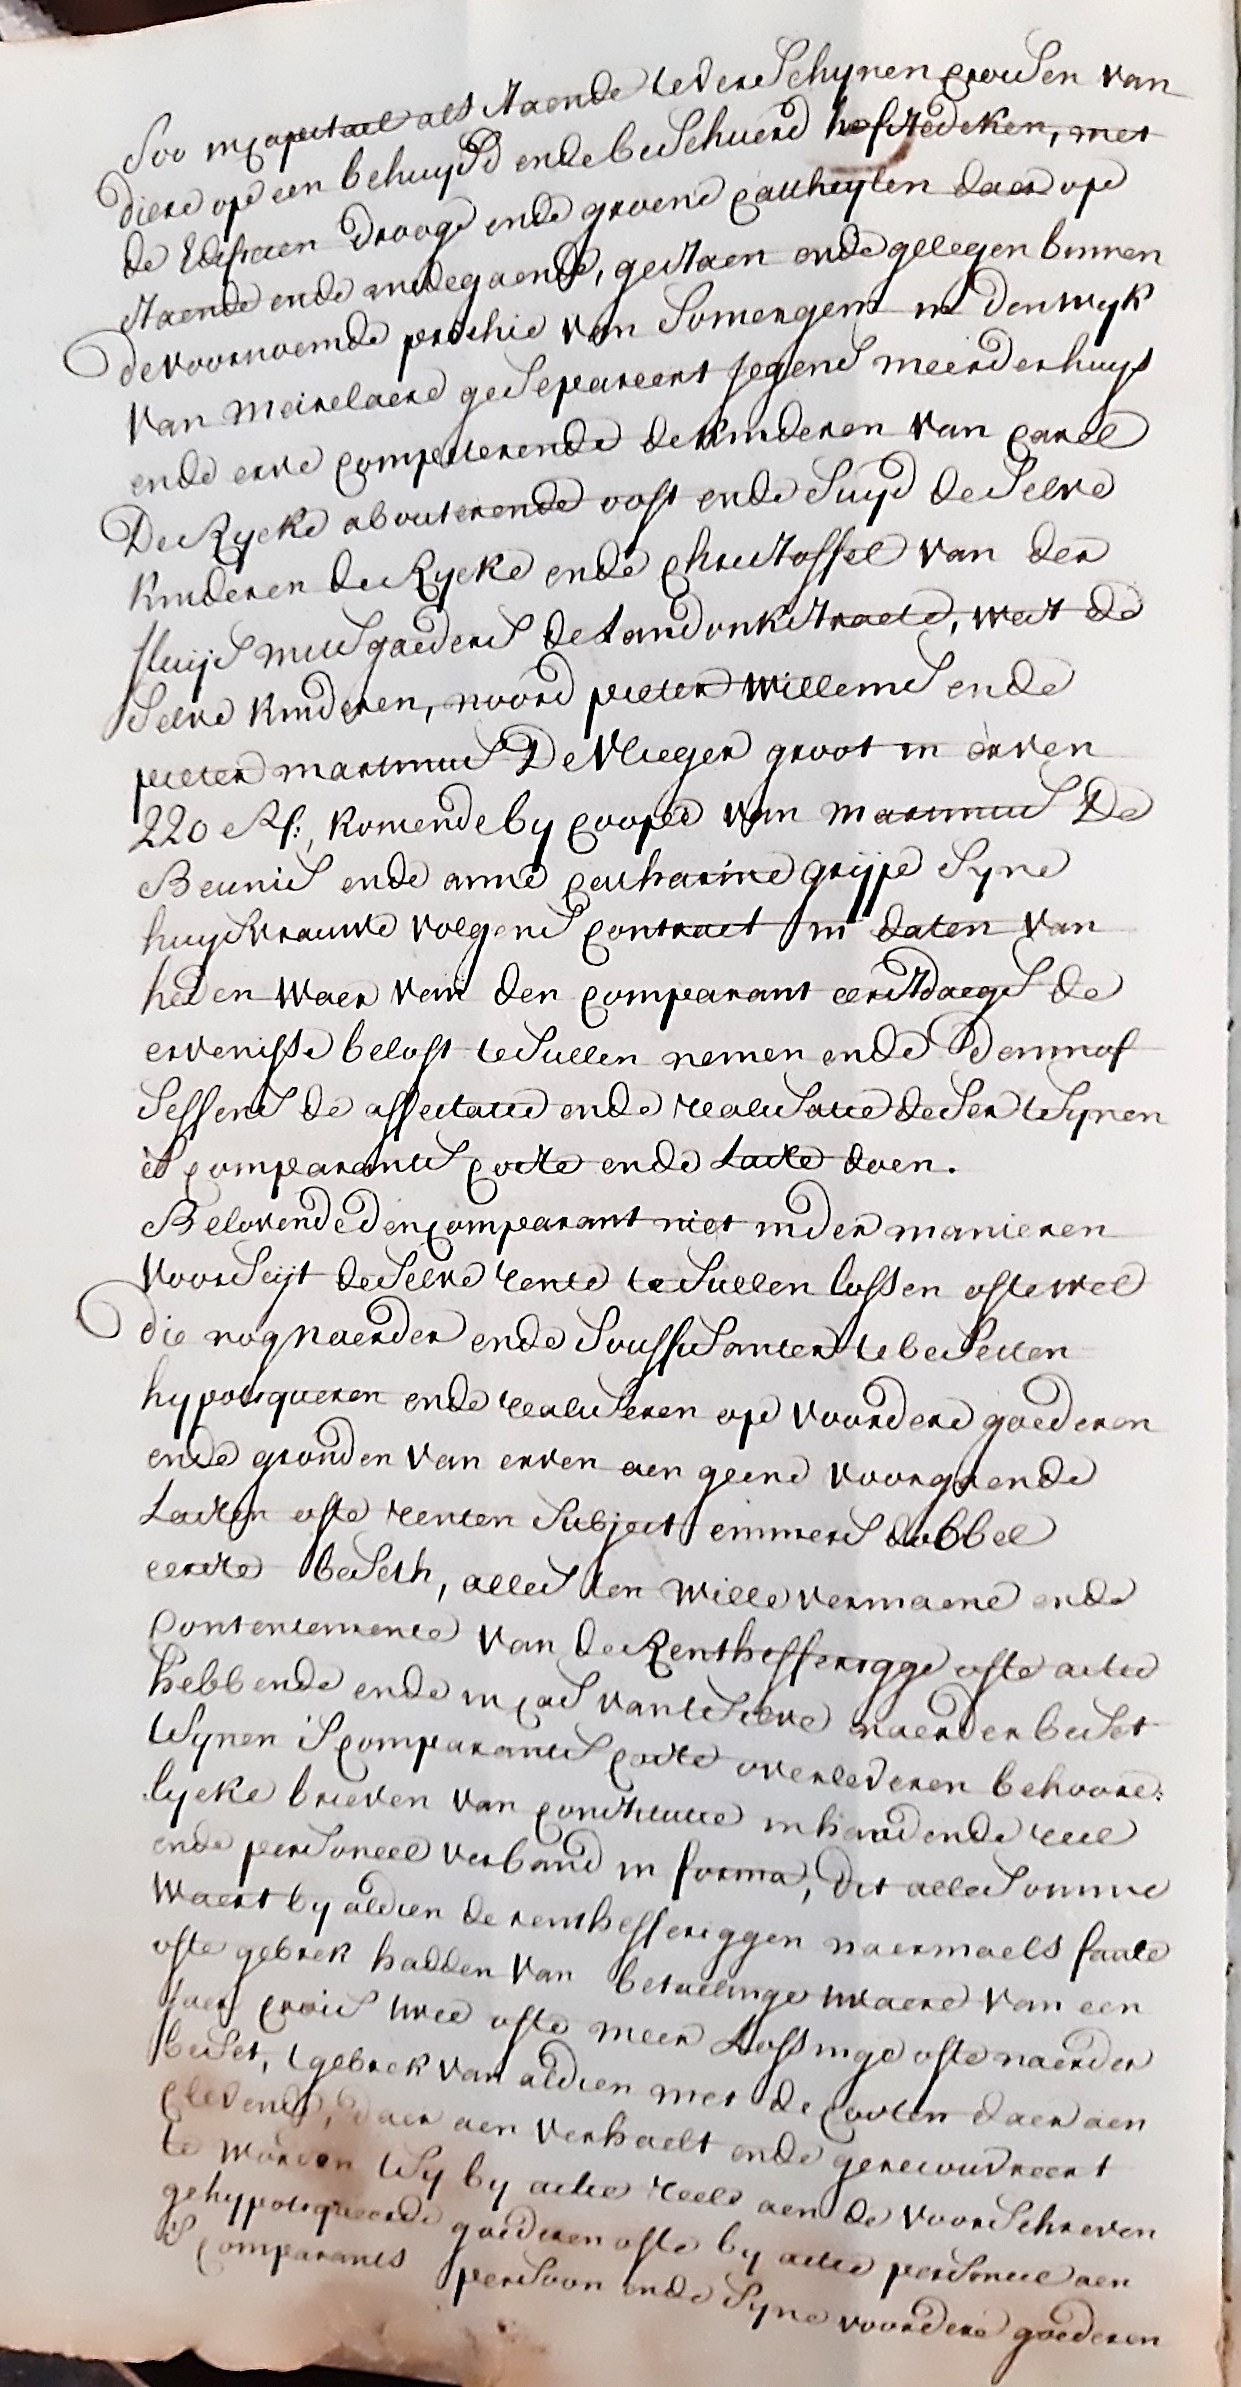 Soo in capitael als staende te verschynen croisen van
diere op een behuysd ende beschuerd hofstedeken, met
de Edificien drooge ende groene Cattheylen daer op
staende ende medegaende, gestaen ende gelegen binnen
de voornoemde prochie van Somergem in den wyk
van meirelaere gesepareert jegens meerder huys
ende erve competerende de kinderen van Carel
De Rycke abouterende oost ende Suyd deselve
kinderen de Rycke ende Christoffel van der
sluijs mitsgaeders de Landonkstraete, west de
selve kinderen, noord pieter Willems ende
pieter martinus De Vlieger groot in erven
220 R:, komende by coope van martinus De
Beunis ende anne Catharine grijpe Syne
huysvrauwe volgens contract in daten van
heden waer van den comparant eerstdaegs de
ervenisse belost te sullen nemen ende danof
seffens de affectatie ende realisatie deser t'synen
is comparants coste ende Laste doen.
Belovende den comparant niet min der manieren
voorseijt deselve rente te sullen lossen ofte wel
die nog naerder ende souffisanter te besetten
hypotiqueren ende realiseren op voordere goederen
ende gronden van erven aen geene voorgaende
Lasten ofte renten Subject immers dobbel
eerste beseth, alles ten wille vermaene ende
Contentemente van de Renthefferigge ofte actie
hebbende ende in cas van t'selve naerder beset
t'synen is comparants coste overlederen behoore:
lycke brieven van constitutie inhaudende reel
ende personeel verband in forma, dit alles omme
waert by aldien de renthefferiggen naermaels faute
ofte gebrek hadden van betaelinge waere van een
jaer crois twee ofte meer Lossinge ofte naerder
beset, t gebrek van aldien met de costen daer aen
clevende, daer aen verhaelt ende gerecouvreert
te worden t'sy by actie reele aen de voorschreven
gehypotiqueerde goederen ofte by actie personele aen
's Comparants persoon ende Syne voordere goederen